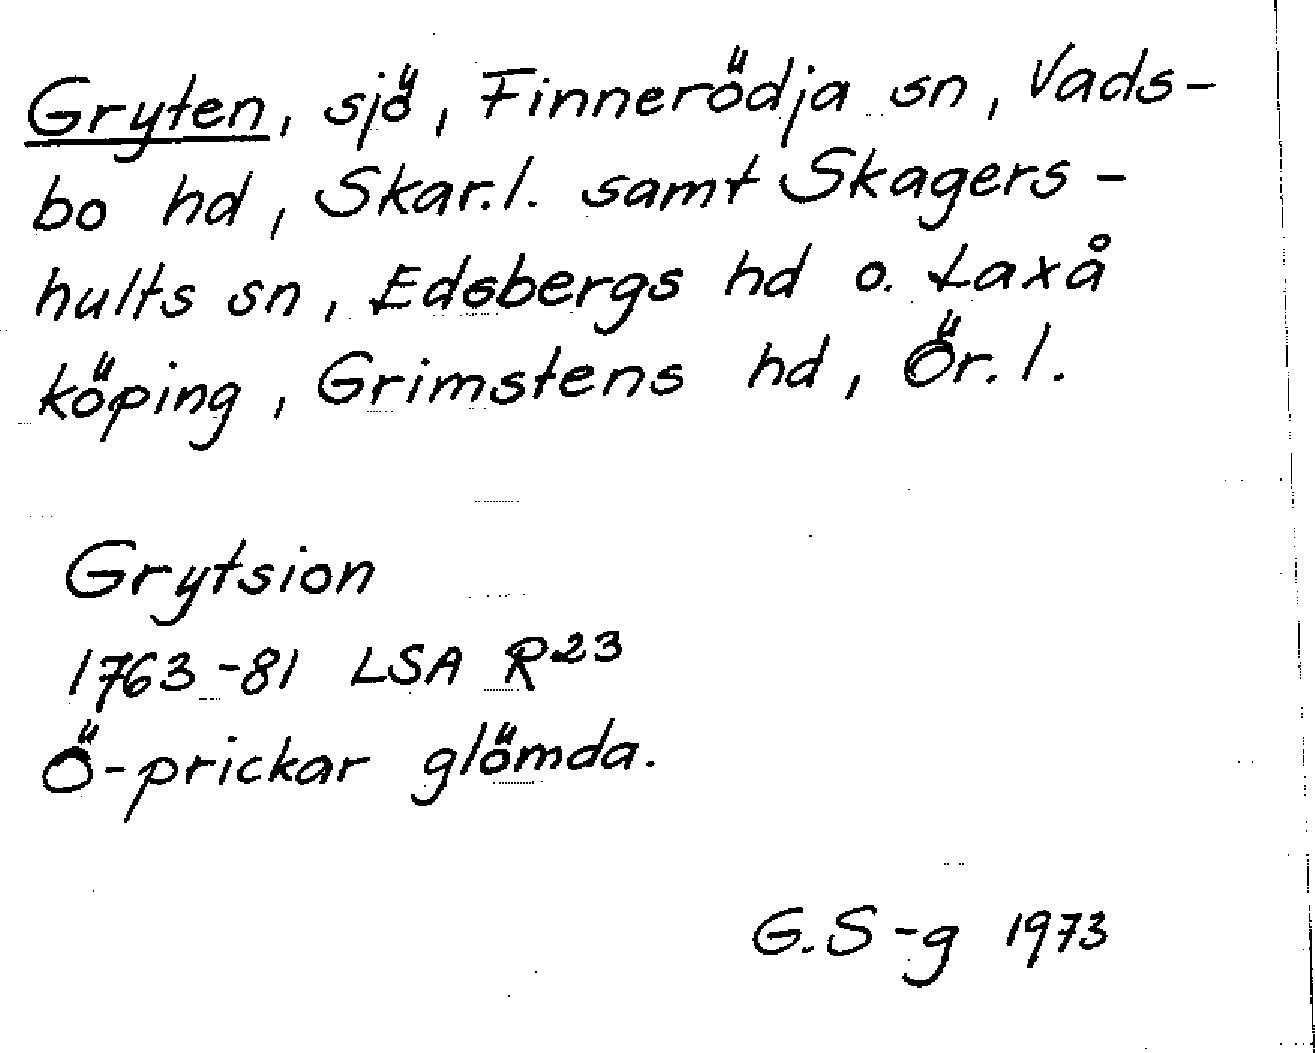 Gryten, sjö, Finnerödja sn, Vads-
bo hd, Skar.l. samt Skagers-
hults sn, Edsbergs hd o. Laxå
köping, Grimstens hd, Ör.l.
Grytsion
1763-81 LSA R23
Ö-prickar glömda.
G.S-g 1973